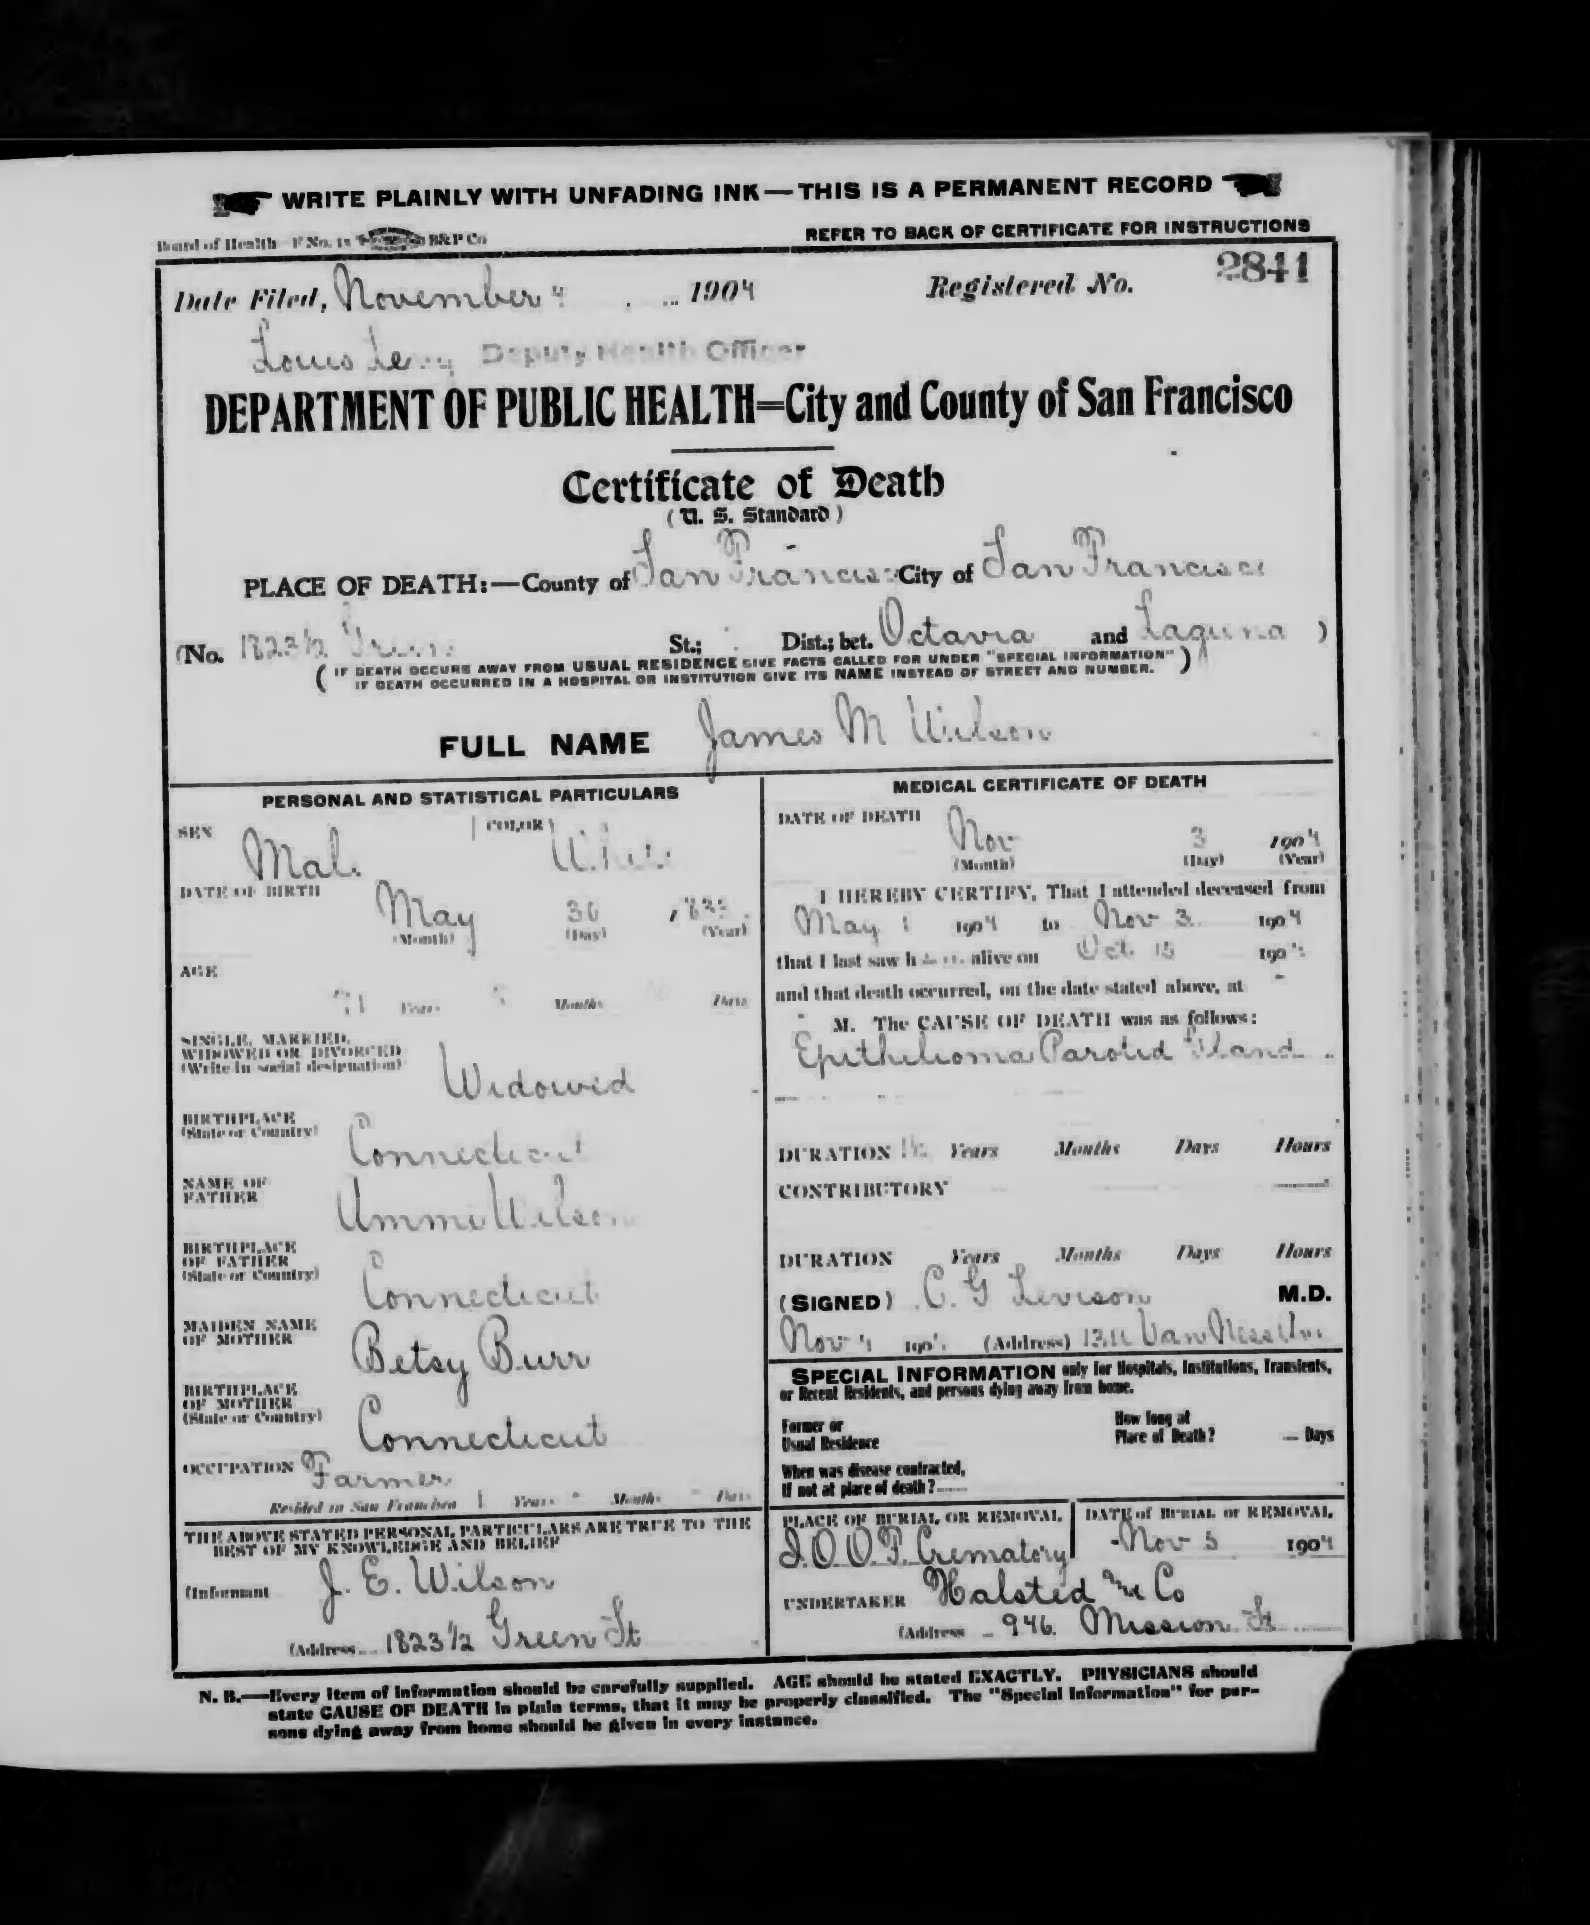 WRITE PLAINLY WITH UNFADING INK — THIS IS A PERMANENT RECORD
Board of Health F No. B&P Co
REFER TO BACK OF CERTIFICATE FOR INSTRUCTIONS
Date Filed, November 4 1904 Registered No. 2841
Louis Levy Deputy Health Officer
DEPARTMENT OF PUBLIC HEALTH=City and County of San Francisco
Certificate of Death
( U. S. Standard )
PLACE OF DEATH:—County of San Francisco City of San Francisco
(No. 1823 1/2 Green St.; Dist.; bet. Octavia and Laguna )
( IF DEATH OCCURS AWAY FROM USUAL RESIDENCE GIVE FACTS CALLED FOR UNDER "SPECIAL INFORMATION" )
IF DEATH OCCURRED IN A HOSPITAL OR INSTITUTION GIVE ITS NAME INSTEAD OF STREET AND NUMBER.
FULL NAME James M Wilson
PERSONAL AND STATISTICAL PARTICULARS
SEX Male COLOR White
DATE OF BIRTH May 30
(Month) (Day) (Year)
AGE
71 Years Months Days
SINGLE, MARRIED,
WIDOWED OR DIVORCED
(Write in social designation)
Widowed
BIRTHPLACE
(State or Country)
Connecticut
NAME OF
FATHER
Ammi Wilson
BIRTHPLACE
OF FATHER
(State or Country)
Connecticut
MAIDEN NAME
OF MOTHER
Betsy Burr
BIRTHPLACE
OF MOTHER
(State or Country)
Connecticut
OCCUPATION Farmer
Resided in San Francisco 1 Years - Months - Days
THE ABOVE STATED PERSONAL PARTICULARS ARE TRUE TO THE
BEST OF MY KNOWLEDGE AND BELIEF
(Informant J. E. Wilson
(Address 1823 1/2 Green St
MEDICAL CERTIFICATE OF DEATH
DATE OF DEATH
Nov 3 1904
(Month) (Day) (Year)
I HEREBY CERTIFY, That I attended deceased from
May 1 1904 to Nov 3 1904
that I last saw him alive on Oct 15 1904
and that death occurred, on the date stated above, at -
- M. The CAUSE OF DEATH was as follows:
Epithelioma Parotid Gland
DURATION Years Months Days Hours
CONTRIBUTORY
DURATION Years Months Days Hours
(SIGNED) C. G Levison M.D.
Nov 4 1904 (Address) Van Ness Ave
SPECIAL INFORMATION only for Hospitals, Institutions, Transients,
or Recent Residents, and persons dying away from home.
Former or
Usual Residence
How long at
Place of Death? — Days
When was disease contracted,
If not at place of death?
PLACE OF BURIAL OR REMOVAL
I.O.O.F. Crematory
DATE of BURIAL or REMOVAL
Nov 5 1904
UNDERTAKER Halsted and Co
(Address 946 Mission St
N. B.—Every item of information should be carefully supplied. AGE should be stated EXACTLY. PHYSICIANS should
state CAUSE OF DEATH in plain terms, that it may be properly classified. The "Special Information" for per-
sons dying away from home should be given in every instance.